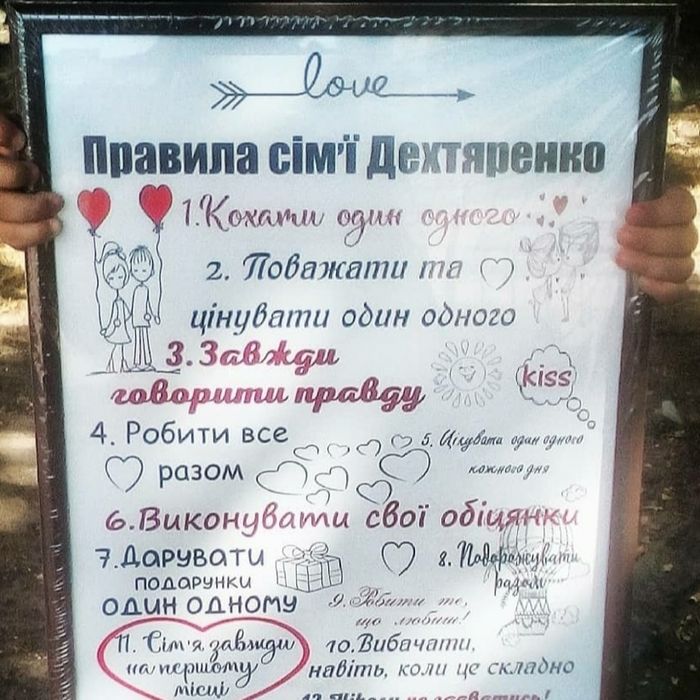 love
Правила сім'ї Дехтяренко
1.Кохати один одного
2. Поважати та
цінувати один одного
3.Завжди
говорити правду
kiss
4. Робити все
разом
5. Цілувати один одного
кожного дня
6.Виконувати свої обіцянки
7.Дарувати
подарунки
один одному
8. Подорожувати
разом
9.Робити те,
що любиш!
10.Вибачати,
навіть, коли це складно
11. Сім'я завжди
на першому
місці
12.Ніколи не здаватись!